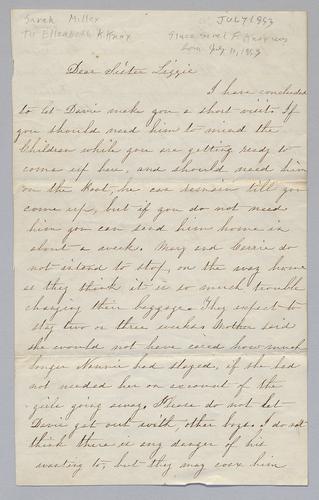 Sarah Miller
To Elizabeth K Knox
JULY 1853
Grace
born July 11, 1853
Dear Sister Lizzie
I have concluded
to let Davie make you a short visit. If
you should need him to mind the
Children while you are getting ready to
come up here, and should need him
on the boat, he can remain till you
come up, but if you do not need
him you can send him home in
about a week. Mary and Carrie do
not intend to stop, on the way home
as they think it is so much trouble
changing their baggage. They expect to
stay two or three weeks. Mother said
she would not have cared how much
longer Nannie had stayed, if she had
not needed her on account of the
girls going away. Please do not let
Davie get out with, other boys. I do not
think there is any danger of his
wanting to, but they may coax him